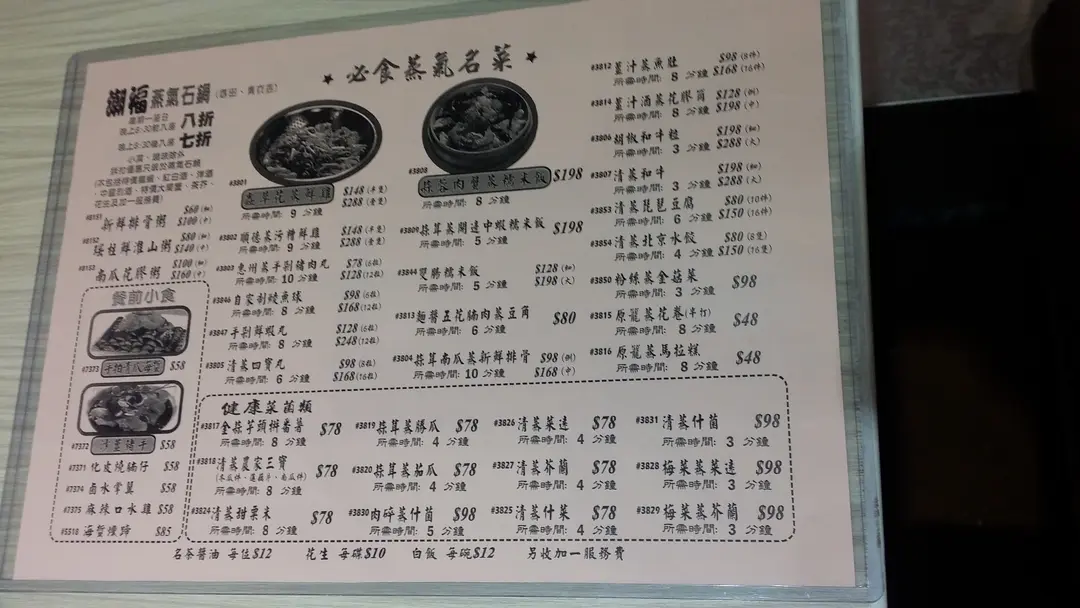 ★ 必食蒸氣名菜 ★
潮福 蒸氣石鍋
星期一至日
晚上6:30前入座 八折
晚上8:30後入座 七折
#8151 新鮮排骨粥 $60(細) $100(中)
#8152 瑤柱鮮淮山粥 $80(細) $140(中)
#8153 南瓜花膠粥 $100(細) $160(中)
餐前小食
#7373 $58
#7372 $58
#7371 化皮燒腩仔 $58
#7374 鹵水掌翼 $58
#7375 麻辣口水雞 $58
#5518 $85
#3801 蟲草花蒸鮮雞 $148(半隻) $288(壹隻)
所需時間: 9 分鐘
#3802 順德蒸污糟鮮雞 $148(半隻) $288(壹隻)
所需時間: 9 分鐘
#3803 惠州蒸手剁豬肉丸 $78(6粒) $128(12粒)
所需時間: 10 分鐘
#3846 自家制鯪魚球 $98(6粒) $168(12粒)
所需時間: 8 分鐘
#3847 手剁鮮蝦丸 $128(6粒) $248(12粒)
所需時間: 8 分鐘
#3805 清蒸四寶丸 $98(8粒) $168(16粒)
所需時間: 6 分鐘
#3808 蒜蓉肉蟹蒸糯米飯 $198
所需時間: 8 分鐘
#3809 蒜茸蒸開邊中蝦糯米飯 $198
所需時間: 5 分鐘
#3844 雙腸糯米飯 $128(細) $198(大)
所需時間: 5 分鐘
#3813 麵醬五花腩肉蒸豆角 $80
所需時間: 6 分鐘
#3804 蒜茸南瓜蒸新鮮排骨 $98(例) $168(中)
所需時間: 10 分鐘
#3812 薑汁蒸魚肚 $98(8件) $168(16件)
所需時間: 8 分鐘
#3814 薑汁酒蒸花膠筒 $128(例) $198(中)
所需時間: 8 分鐘
#3806 胡椒和牛粒 $198(細) $288(大)
所需時間: 3 分鐘
#3807 清蒸和牛 $198(細) $288(大)
所需時間: 3 分鐘
#3853 清蒸琵琶豆腐 $80(10件) $150(16件)
所需時間: 6 分鐘
#3854 清蒸北京水餃 $80(8隻) $150(16隻)
所需時間: 4 分鐘
#3850 粉絲蒸金菇菜 $98
所需時間: 3 分鐘
#3815 原籠蒸花卷(半打) $48
所需時間: 8 分鐘
#3816 原籠蒸馬拉糕 $48
所需時間: 8 分鐘
健康菜菌類
#3817 金蒜芋頭拼番薯 $78
所需時間: 8 分鐘
#3818 清蒸農家三寶 $78
所需時間: 8 分鐘
#3824 清蒸甜粟米 $78
所需時間: 8 分鐘
#3819 蒜茸蒸勝瓜 $78
所需時間: 4 分鐘
#3820 蒜茸蒸茄瓜 $78
所需時間: 4 分鐘
#3830 肉碎蒸什菌 $98
所需時間: 5 分鐘
#3826 清蒸菜遠 $78
所需時間: 4 分鐘
#3827 清蒸芥蘭 $78
所需時間: 4 分鐘
#3825 清蒸什菜 $78
所需時間: 4 分鐘
#3831 清蒸什菌 $98
所需時間: 3 分鐘
#3828 梅菜蒸菜遠 $98
所需時間: 3 分鐘
#3829 梅菜蒸芥蘭 $98
所需時間: 3 分鐘
名茶醬油 每位$12 花生 每碟$10 白飯 每碗$12 另收加一服務費